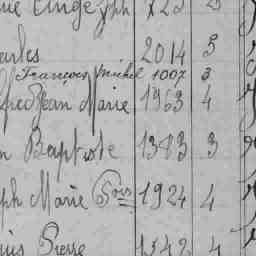 Ange jph 3
arles 2014 3
François Michel 1007 3
fred Jean Marie 1963 4
n Baptiste 1383 3
ph Marie Fois 1924 4
uis Pierre 1342 4